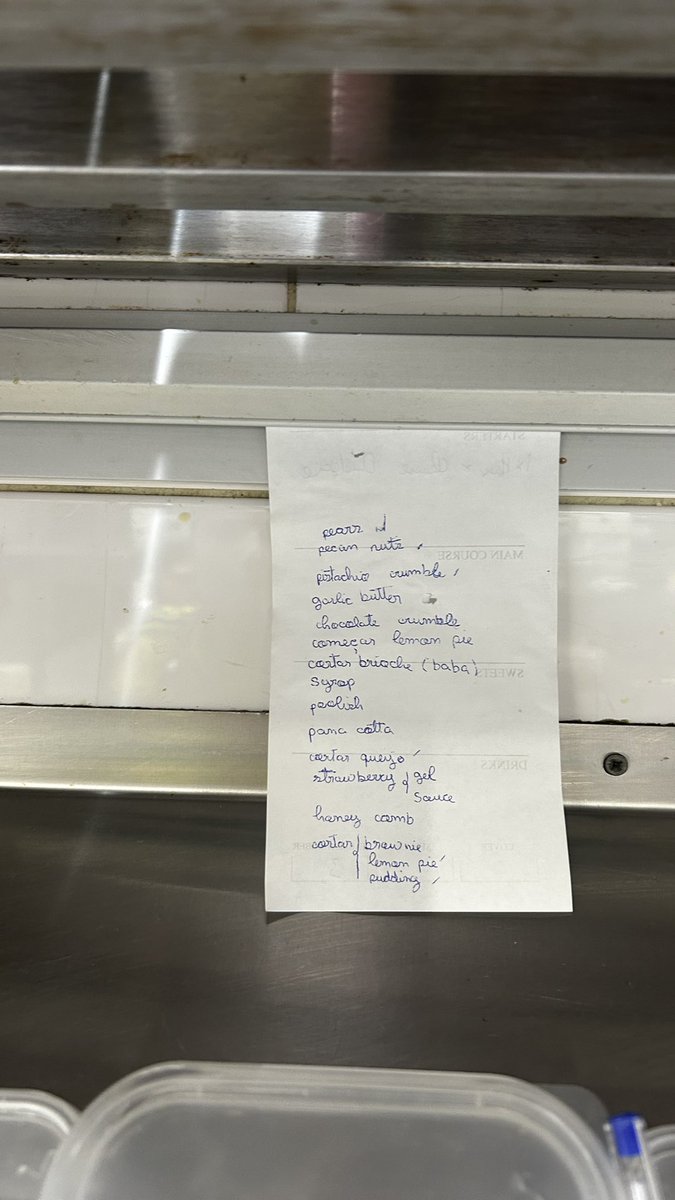 pears
pecan nuts
pistachio crumble
garlic butter
chocolate crumble
começar lemon pie
cortar brioche (baba)
syrop
poolish
pana cotta
cortar queijo
strawberry { gel
sauce
honey comb
cortar { brownie
lemon pie
pudding
STARTERS
MAIN COURSE
SWEETS
DRINKS